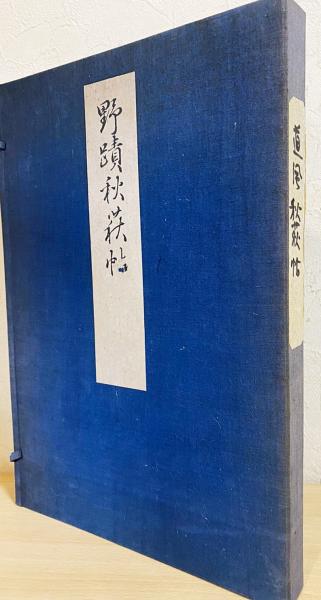 野蹟秋萩帖
道風 秋萩帖